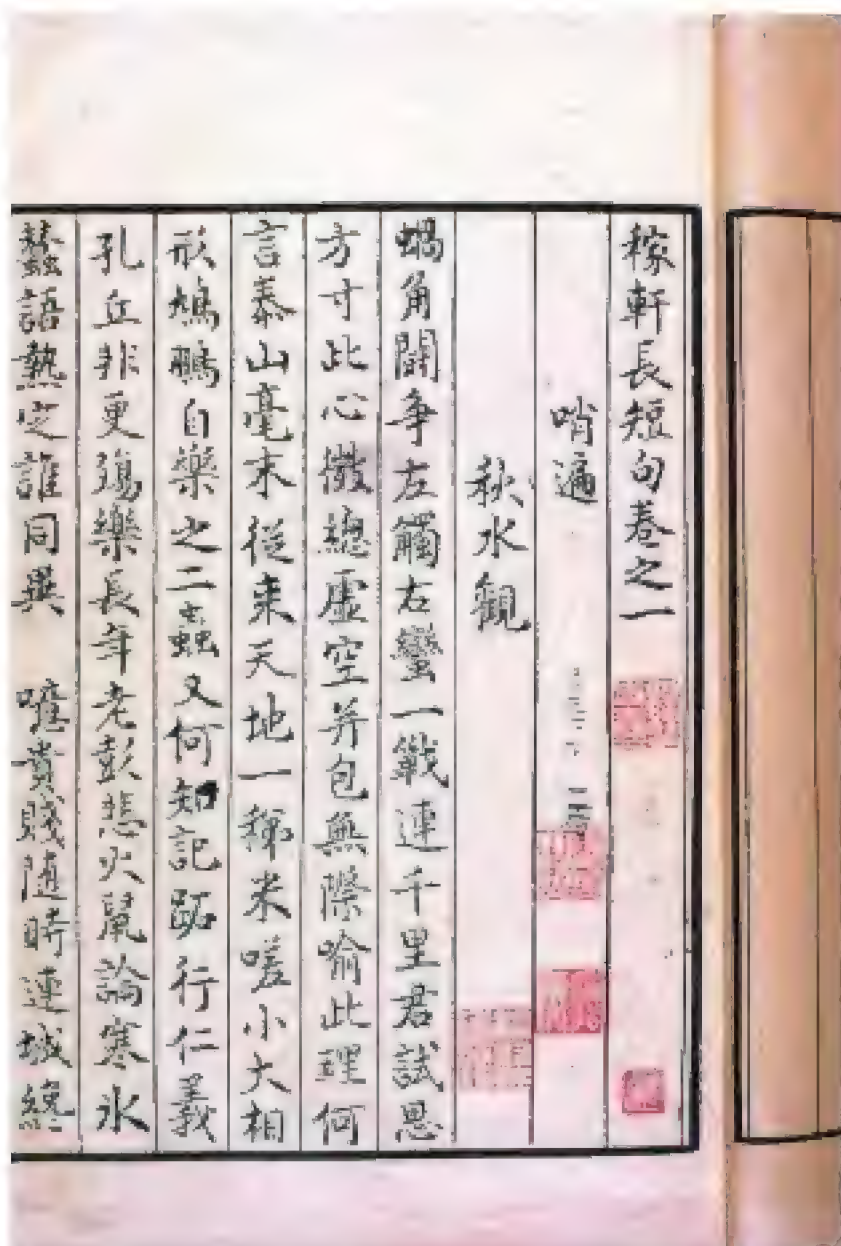 稼軒長短句卷之一
哨遍
秋水觀
蝸角闘争左觸右蠻一戰連千里君試思
方寸此心微緫虛空并包無際喻此理何
言泰山毫末從来天地一稊米嗟小大相
形鳩鵬自樂之二蟲又何知記跖行仁義
孔丘非更殤樂長年老彭悲火鼠論寒氷
蠶語熱定誰同異 噫貴賤隨時連城纔